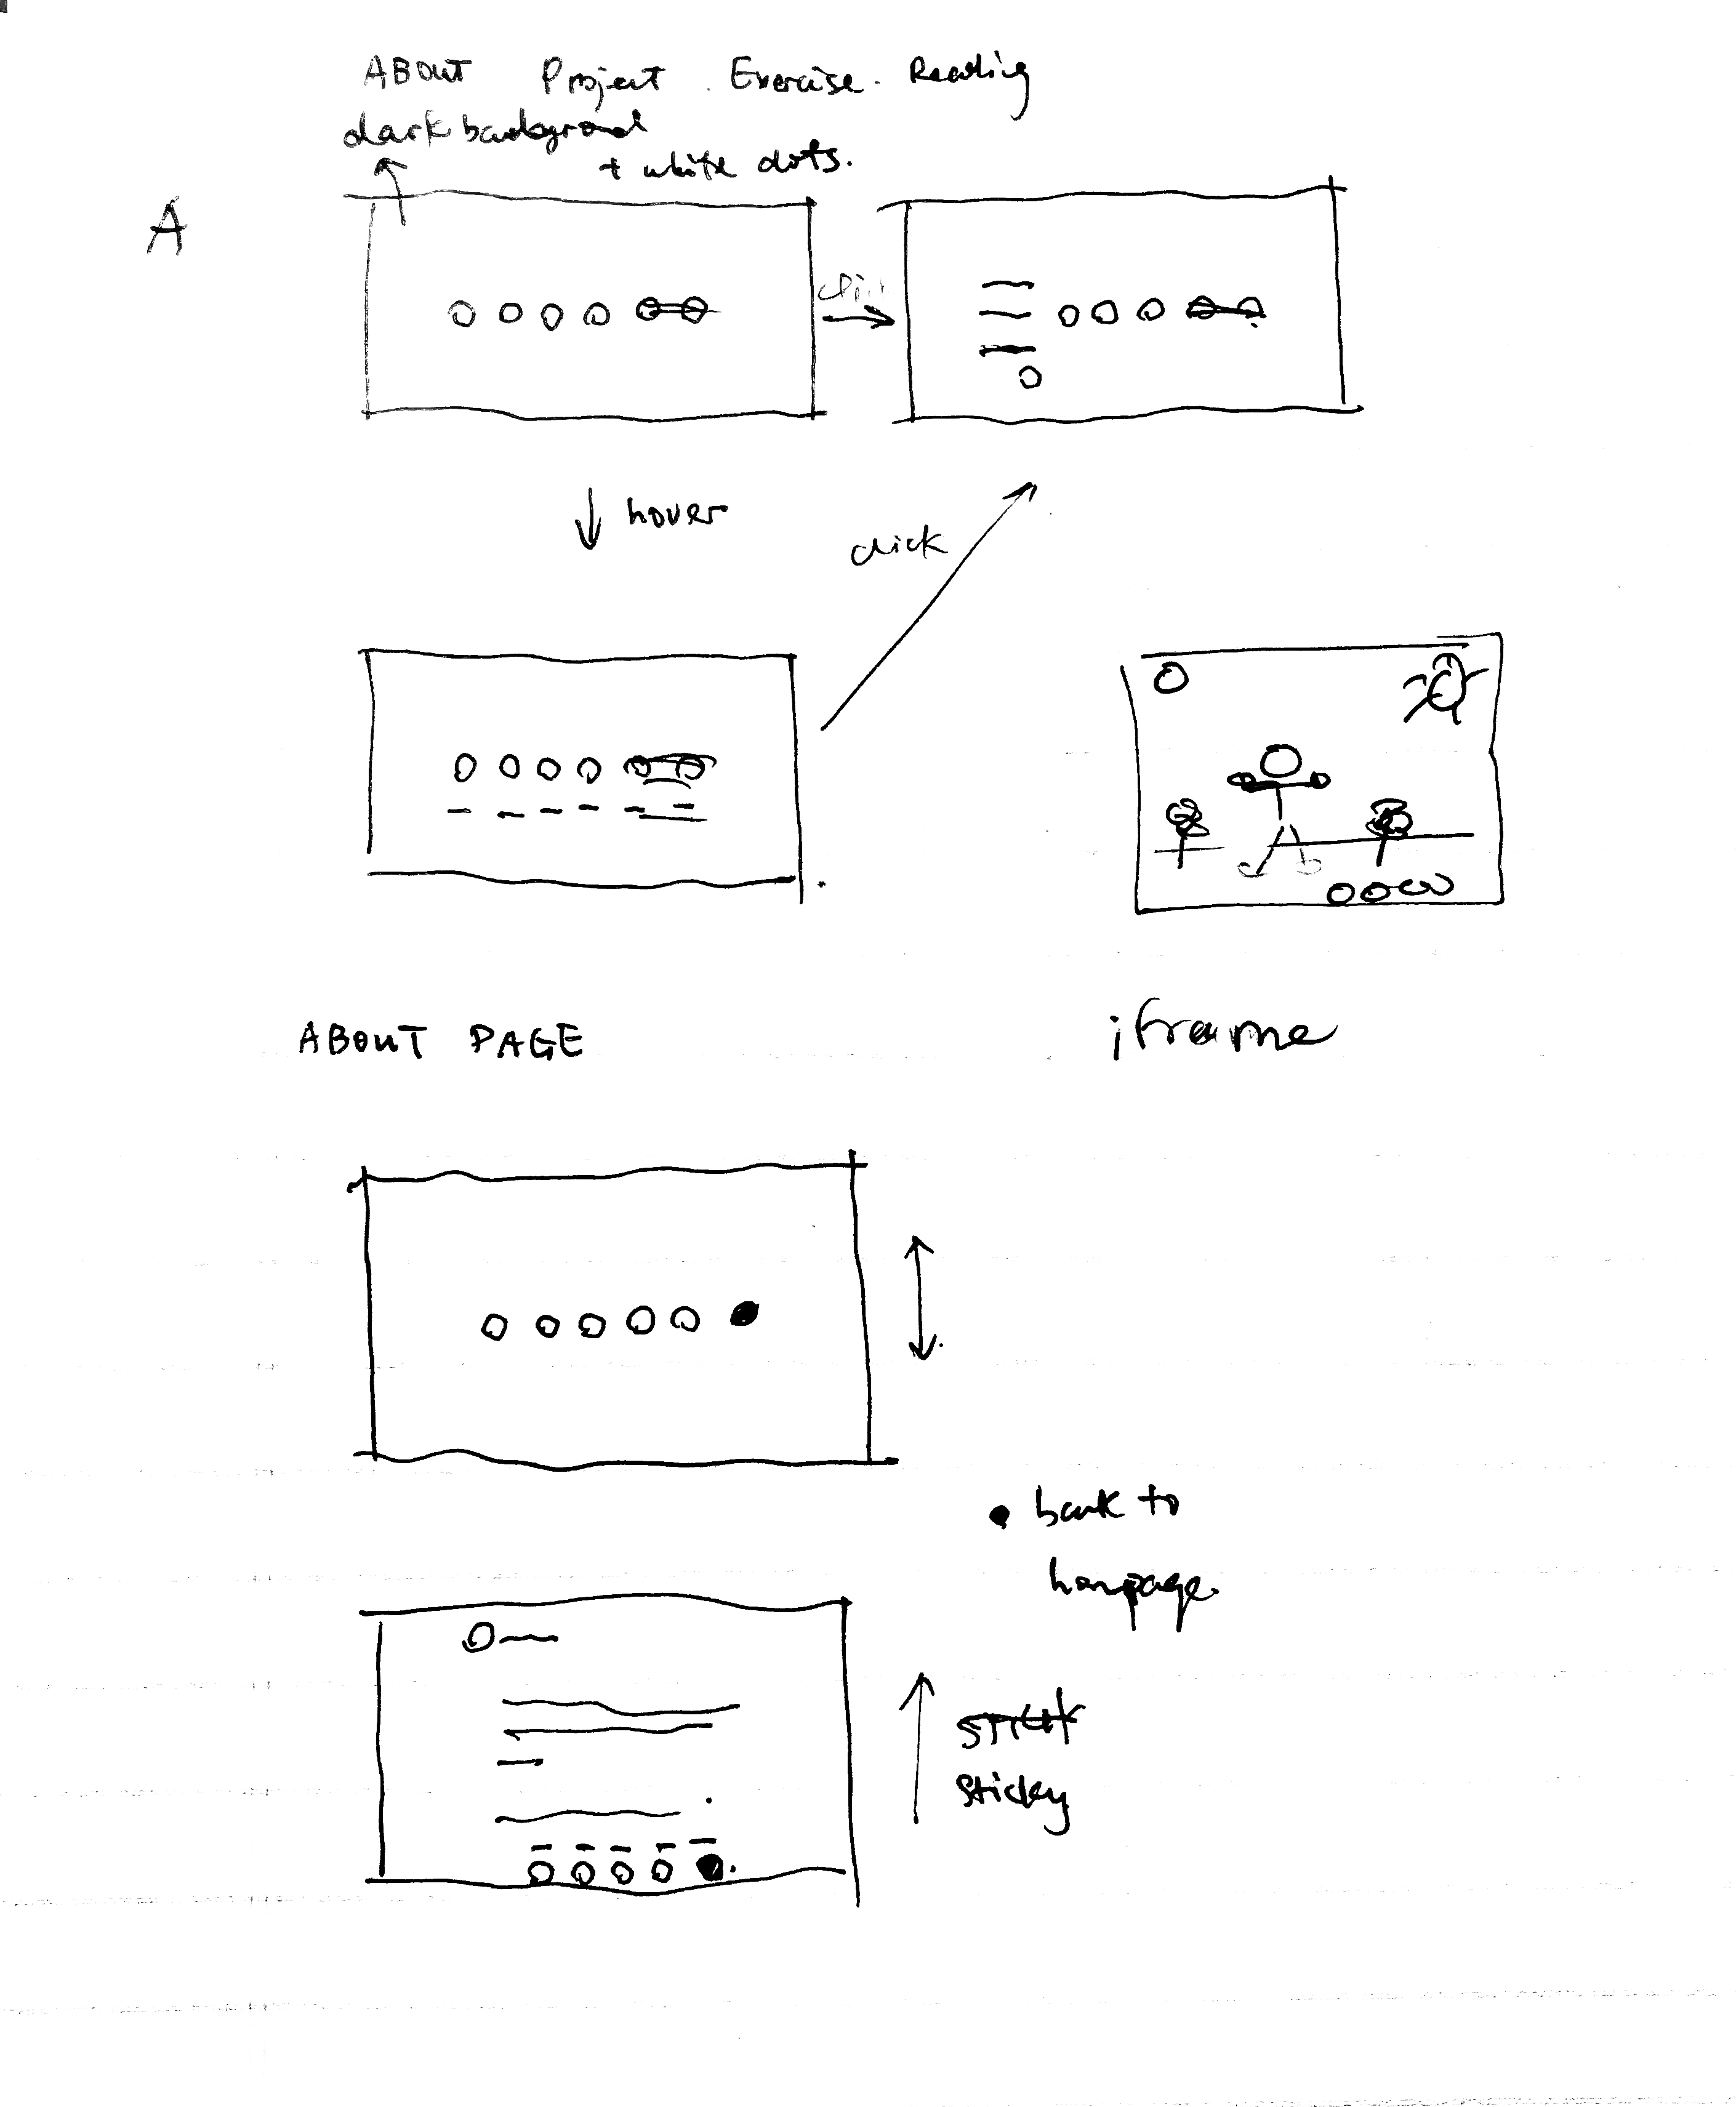 ABOUT Project . Exercise . Reading
dark background
+ white dots.
A
click
hover
click
ABOUT PAGE
iframe
• back to
hompage.
Sticky